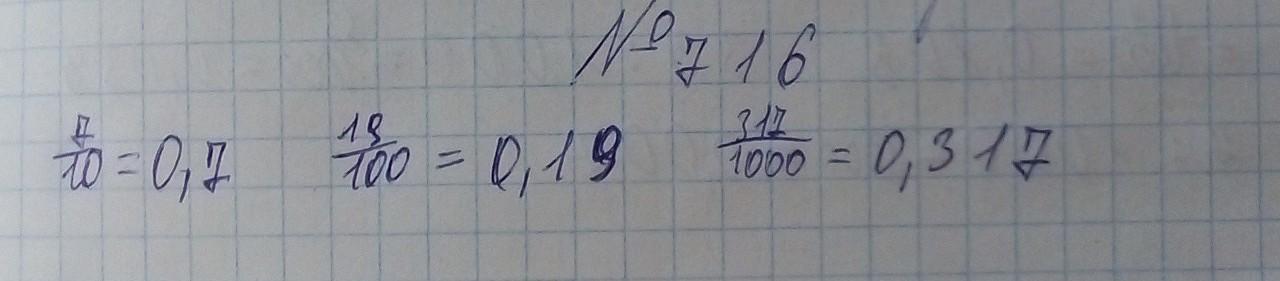 № 716
7/10 = 0,7 19/100 = 0,19 317/1000 = 0,317